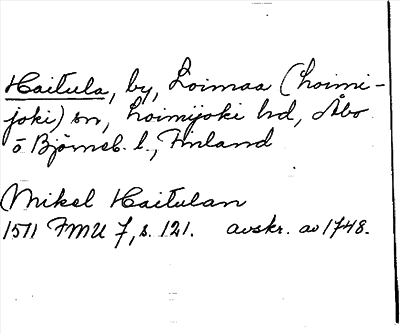 Haitula, by, Loimaa (Loimi-
joki) sn, Loimijoki hd, Åbo
o. Björneb. l., Finland
Mikel Haitulan
1511 FMU 7, s. 121. avskr. av 1748.